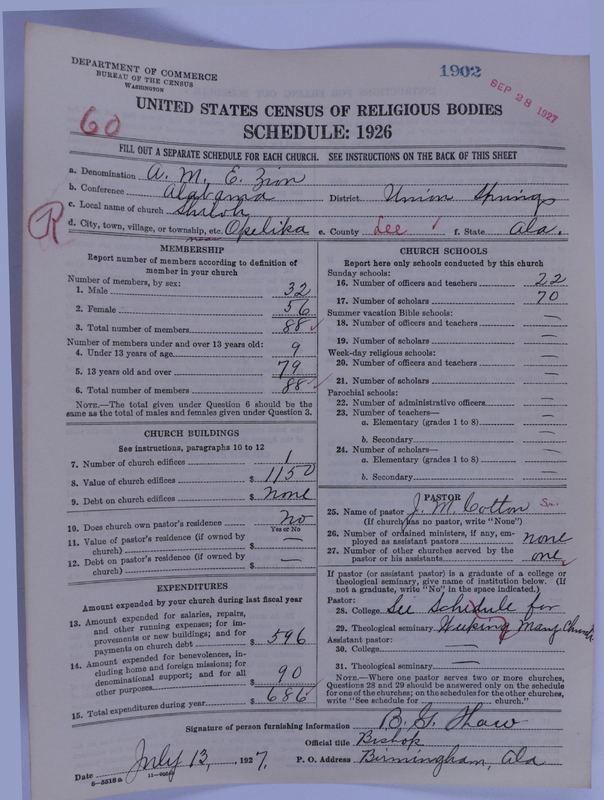 DEPARTMENT OF COMMERCE
BUREAU OF THE CENSUS
WASHINGTON
1902
SEP 28 1927
60
UNITED STATES CENSUS OF RELIGIOUS BODIES
SCHEDULE: 1926
FILL OUT A SEPARATE SCHEDULE FOR EACH CHURCH. SEE INSTRUCTIONS ON THE BACK OF THIS SHEET
a. Denomination A. M. E. Zion
b. Conference Alabama District Union Springs
c. Local name of church Shiloh
R
d. City, town, village, or township, etc. near Opelika e. County Lee f. State Ala.
MEMBERSHIP
Report number of members according to definition of
member in your church
Number of members, by sex:
1. Male 32
2. Female 56
3. Total number of members 88
Number of members under and over 13 years old:
4. Under 13 years of age 9
5. 13 years old and over 79
6. Total number of members 88
NOTE.—The total given under Question 6 should be the
same as the total of males and females given under Question 3.
CHURCH BUILDINGS
See instructions, paragraphs 10 to 12
7. Number of church edifices 1
8. Value of church edifices $ 1150
9. Debt on church edifices $ none
10. Does church own pastor's residence no
Yes or No
11. Value of pastor's residence (if owned by
church) $ —
12. Debt on pastor's residence (if owned by
church) $ —
EXPENDITURES
Amount expended by your church during last fiscal year
13. Amount expended for salaries, repairs,
and other running expenses; for im-
provements or new buildings; and for
payments on church debt $ 596
14. Amount expended for benevolences, in-
cluding home and foreign missions; for
denominational support; and for all
other purposes $ 90
15. Total expenditures during year $ 686
CHURCH SCHOOLS
Report here only schools conducted by this church
Sunday schools:
16. Number of officers and teachers 22
17. Number of scholars 70
Summer vacation Bible schools:
18. Number of officers and teachers —
19. Number of scholars —
Week-day religious schools:
20. Number of officers and teachers —
21. Number of scholars —
Parochial schools:
22. Number of administrative officers —
23. Number of teachers—
a. Elementary (grades 1 to 8) —
b. Secondary —
24. Number of scholars—
a. Elementary (grades 1 to 8) —
b. Secondary —
PASTOR
25. Name of pastor J. M. Cotton
(If church has no pastor, write "None")
26. Number of ordained ministers, if any, em-
ployed as assistant pastors none
27. Number of other churches served by the
pastor or his assistants one
If pastor (or assistant pastor) is a graduate of a college or
theological seminary, give name of institution below. (If
not a graduate, write "No" in the space indicated.)
Pastor:
28. College See Schedule for
29. Theological seminary Church
Assistant pastor:
30. College —
31. Theological seminary —
NOTE.—Where one pastor serves two or more churches,
Questions 28 and 29 should be answered only on the schedule
for one of the churches; on the schedules for the other churches,
write "See schedule for church."
Signature of person furnishing information B. G. Shaw
Official title Bishop
Date July 13, 1927. P. O. Address Birmingham, Ala